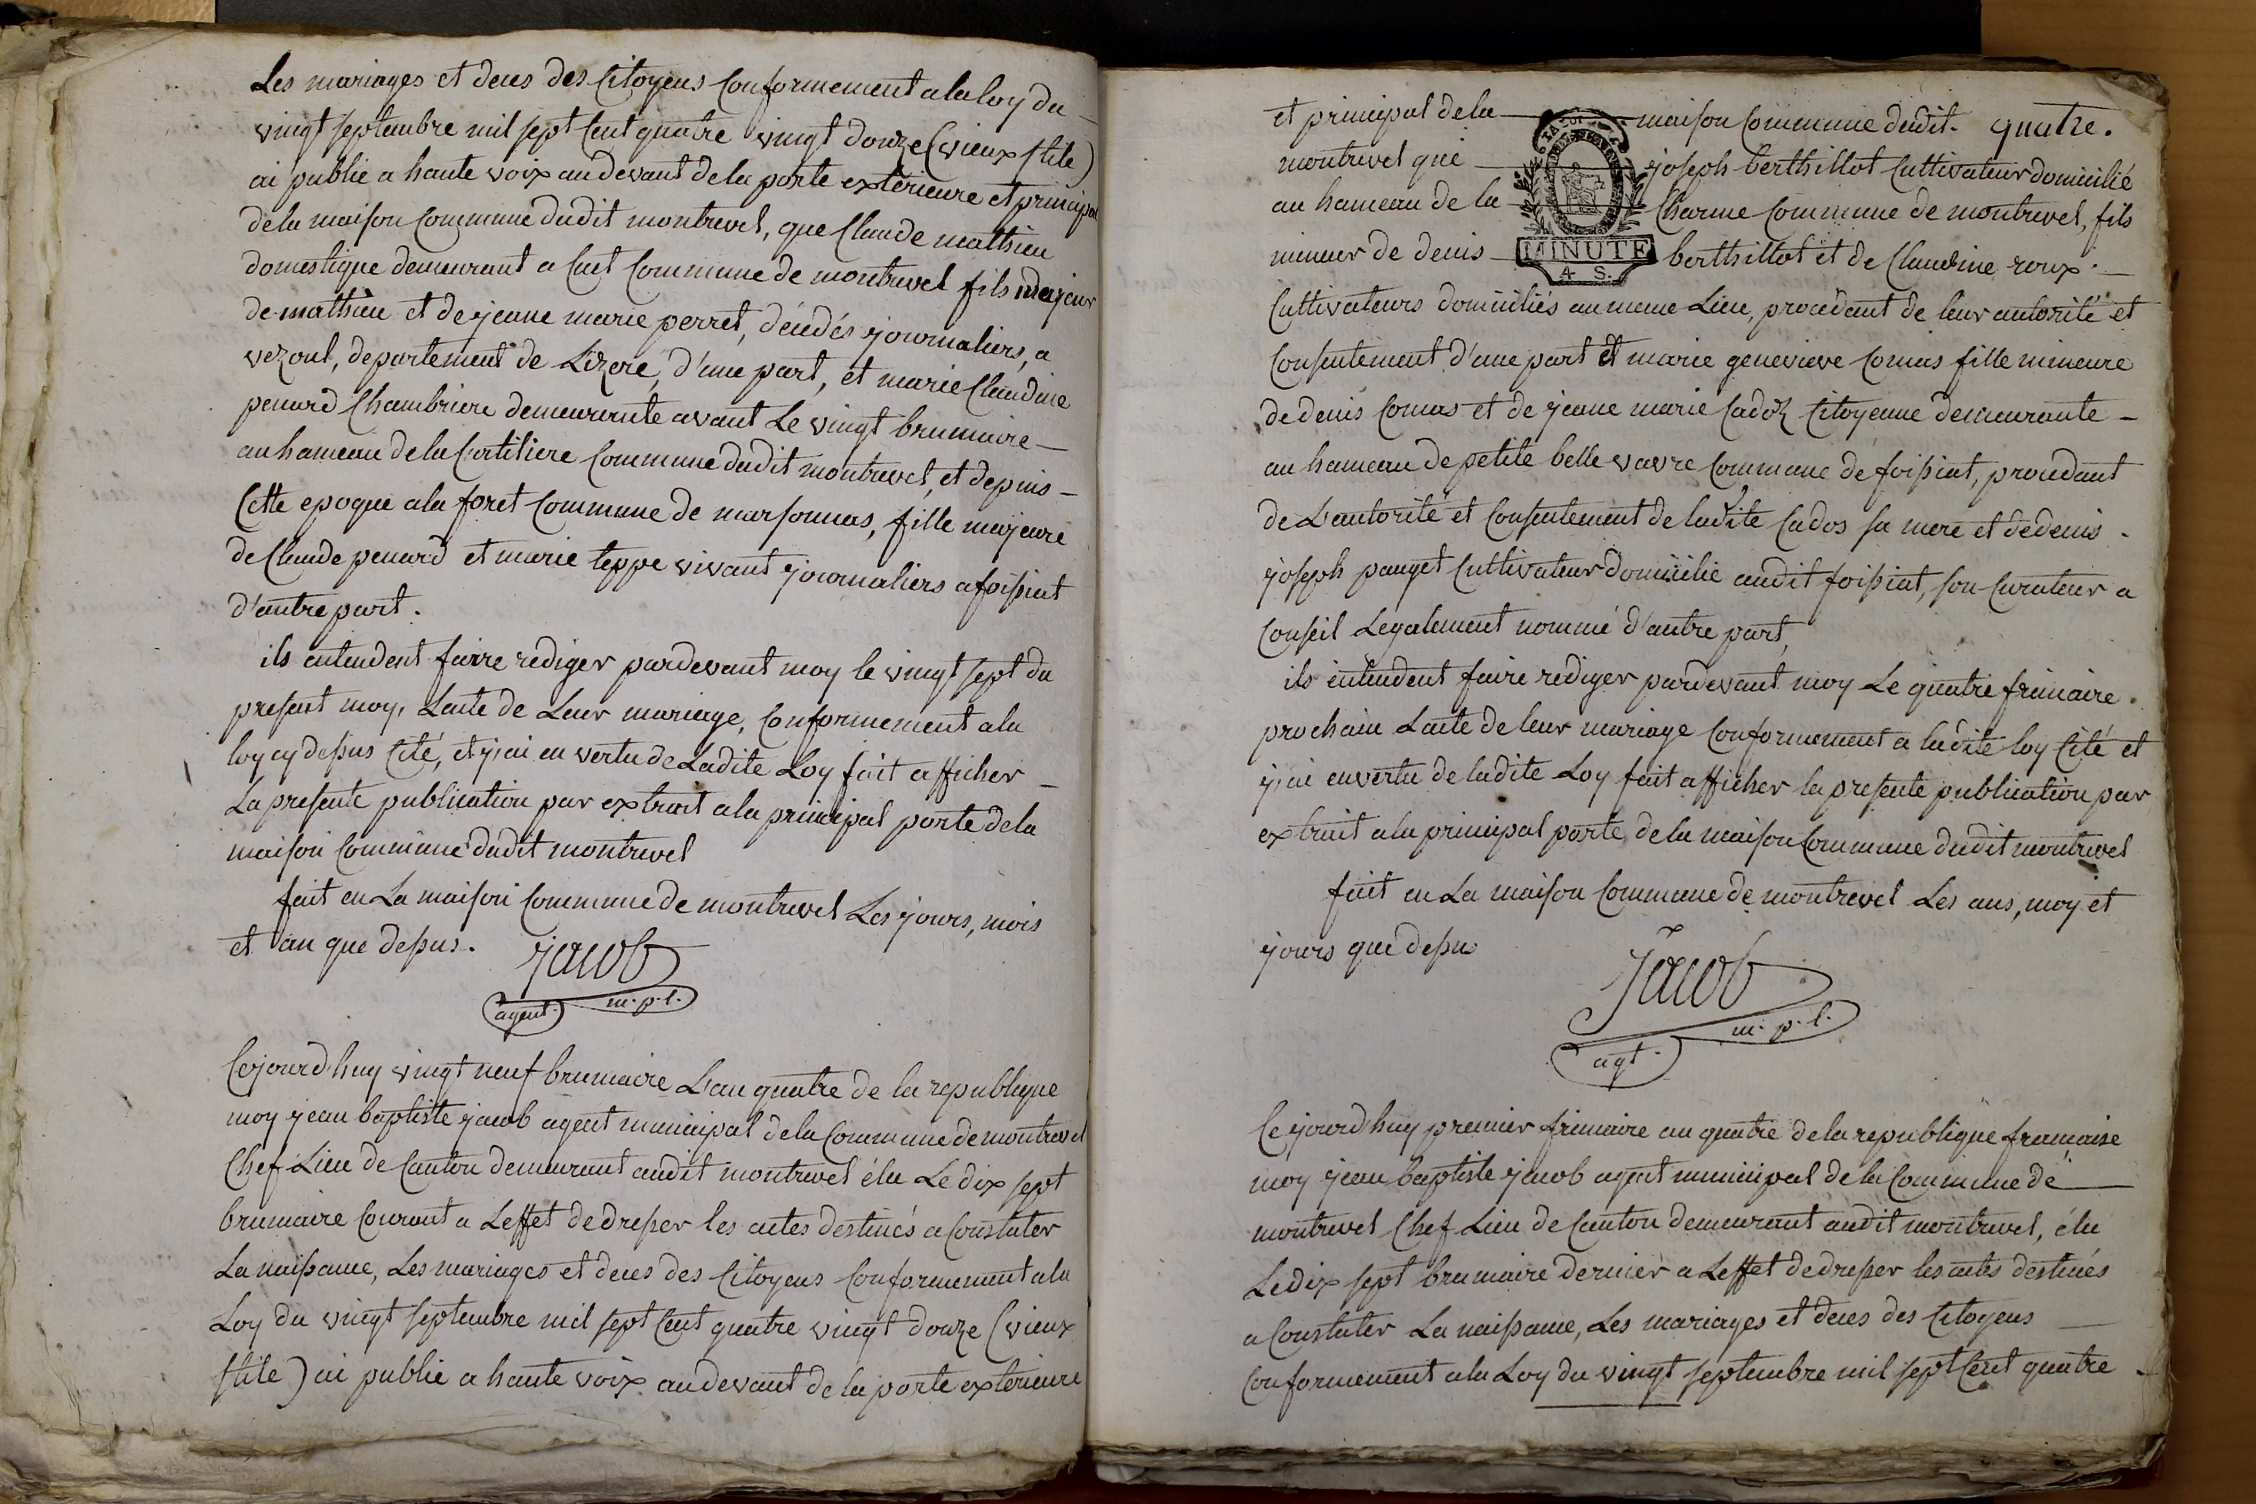 Les mariages et deces des Citoyens Conformement a la loy du
vingt septembre mil sept Cent quatre vingt douze (vieux stile)
ai publie a haute voix au devant de la porte exterieure et principal
de la maison Commune dudit montrevel, que Claude mathieu
domestique demeurant a Cuet Commune de montrevel fils majeur
de mathieu et de jeanne marie perret, décédés journaliers, a
vezoul, departement de Lizere, d'une part, et marie Claudine
penard Chambriere demeurante avant Le vingt brumaire
au hameau de la Cortiliere Commune dudit montrevel, et depuis
Cette epoque a la foret Commune de marsonnas, fille majeure
de Claude penard et marie teppe vivant journaliers a foissiat
d'autre part.
ils entendent faire rediger pardevant moy le vingt sept du
present moy, Lacte de Leur mariage, Conformement a la
loy cy dessus Cité, et j'ai en vertu de Ladite Loy fait afficher
La presente publication par extrait a la principal porte de la
maison Commune dudit montrevel
fait en La maison Commune de montrevel Les jours, mois
et an que dessus. jacob
agent. m. p. l.
Cejourd'huy vingt neuf brumaire L'an quatre de la republique
moy jean baptiste jacob agent municipal de la Commune de montrevel
Chef Lieu de Canton demeurant audit montrevel élu Le dix sept
brumaire Courant a Leffet de dresser les actes destinés a Constater
La naissance, Les mariages et deces des Citoyens Conformement a la
Loy du vingt septembre mil sept Cent quatre vingt douze (vieux
stile) ai publie a haute voix au devant de la porte exterieure
et principal de la maison Commune dudit. quatre.
montrevel que joseph berthillot Cultivateur domicilié
au hameau de la Charme Commune de montrevel, fils
mineur de denis berthillot et de Claudine roux.
LA LOI
MINUTE
4 S.
Cultivateurs domiciliés au meme Lieu, procédant de leur autorité et
Consentement d'une part et marie genevieve Comas fille mineure
de denis Comas et de jeane marie Cadoz Citoyenne demeurante
au hameau de petite belle vavre Commune de foissiat, procedant
de L'autorité et Consentement de ladite Cados sa mere et de denis
joseph pauget Cultivateur domicilié audit foissiat, son Curateur a
Conseil Legalement nommé d'autre part,
ils entendent faire rediger pardevant moy Le quatre frimaire.
prochain Lacte de leur mariage Conformement a ladite loy Cité et
j'ai en vertu de ladite Loy fait afficher la presente publication par
extrait a la principal porte de la maison Commune dudit montrevel
fait en La maison Commune de montrevel Les ans, moy et
jours que dessu
jacob
agt. m. p. l.
Cejourd'huy premier frimaire an quatre de la republique française
moy jean baptiste jacob agent municipal de la Commune de
montrevel Chef Lieu de Canton demeurant audit montrevel, élu
Le dix sept brumaire dernier a Leffet de dresser les actes destinés
a Constater La naissance, Les mariages et deces des Citoyens
Conformement a la Loy du vingt septembre mil sept Cent quatre